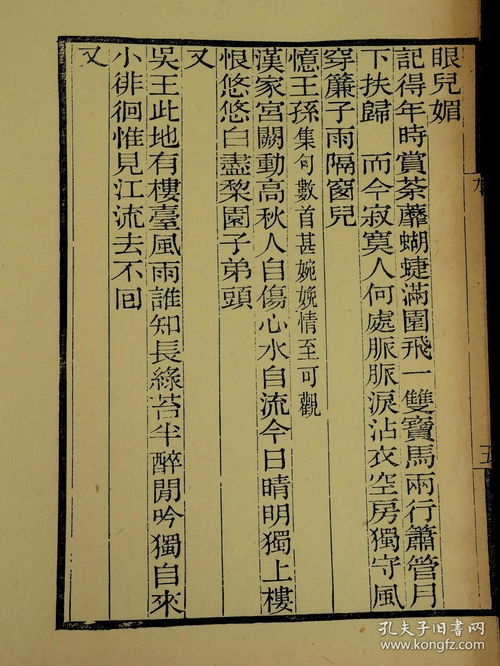 眼兒媚
記得年時賞荼蘼蝴蜨滿園飛一雙寶馬兩行簫管月
下扶歸　而今寂寞人何處脈脈淚沾衣空房獨守風
穿簾子雨隔窗兒
憶王孫集句數首甚婉娩情至可觀
漢家宮闕動高秋人自傷心水自流今日晴明獨上樓
恨悠悠白盡棃園子弟頭
又
吳王此地有樓臺風雨誰知長綠苔半醉閒吟獨自來
小徘徊惟見江流去不回
又
五
孔夫子旧書网
www.kongfz.com